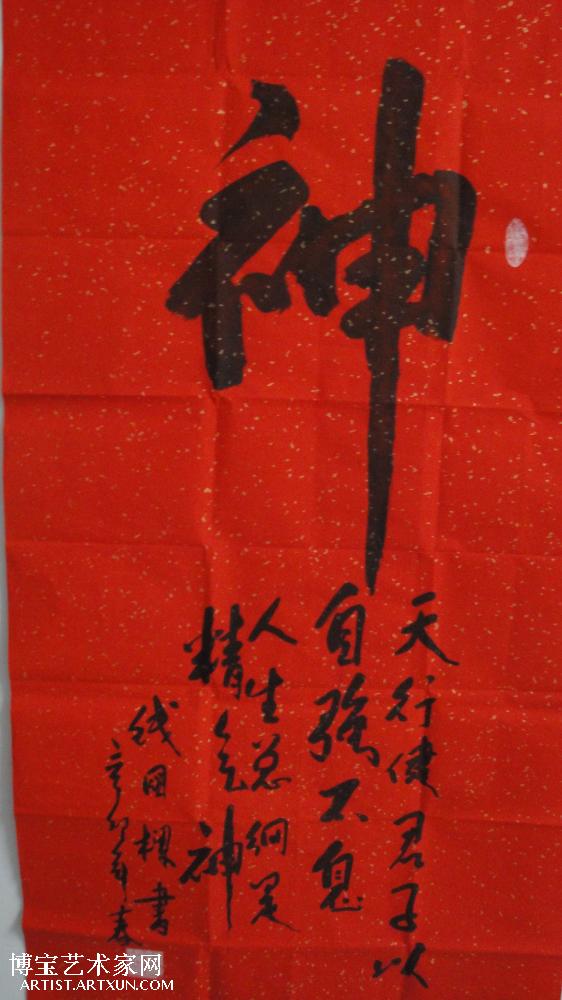 神
天行健君子以
自强不息
人生总纲是
精气神
钱国樑书
辛卯年春
博宝艺术家网
ARTIST.ARTXUN.COM